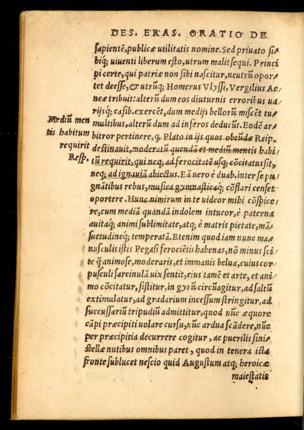 DES. ERAS. ORATIO DE
sapientē, publicæ utilitatis nomine. Sed priuato si⸗
biq; uiuenti liberum esto, utrum malit sequi. Princi
pi certe, qui patriæ non sibi nascitur, neutrū opor⸗
tet deesse, & utrūq; Homerus Vlyssi, Vergilius Ae⸗
neæ tribuit: alterū dum eos diuturnis erroribus ua⸗
rijsq; casib. exercēt, dum medijs bellorū miscēt tu⸗
multibus, alterū dum ad inferos deducūt. Eodē ar⸗
bitror pertinere, q̃ Plato in ijs quos obeūdæ Reip.
destinauit, moderatū quendā et mediū mentis habi⸗
tū requirit, qui neq; ad ferocitatē usq; cōcitatus sit,
neq; ad ignauiā abiectus. Eā uero è duab. inter se pu
gnātibus rebus, musica gymnasticaq; cōflari censet
oportere. Hunc nimirum in te uideor mihi cōspice⸗
re, cum mediā quandā indolem intueor, è paterna
auitaq; animi sublimitate, atq; è matris pietate, mā⸗
suetudineq; temperatā. Etenim quod iam nunc ma⸗
nusculis istis Pegasi ferociētis habenas, nō minus sci⸗
te q̃ animose, moderaris, et immanis beluæ, cuius cor⸗
pusculi sarcinulā uix sentit, eius tamē et arte, et ani⸗
mo cōcitatur, sistitur, in gyrū circūagitur, ad saltū
extimulatur, ad gradarium incessum stringitur, ad
succussariū tripudiū admittitur, quod nūc æquore
cāpi præcipiti uolare cursu, nūc ardua scādere, nūc
per præcipitia decurrere cogitur, ac puerilis sini⸗
stellæ nutibus omnibus paret, quod in tenera ista
fronte sublucet nescio quid Augustum atq; heroicæ
maiestatis
Mediū men
tis habitum
requirit
Resp.